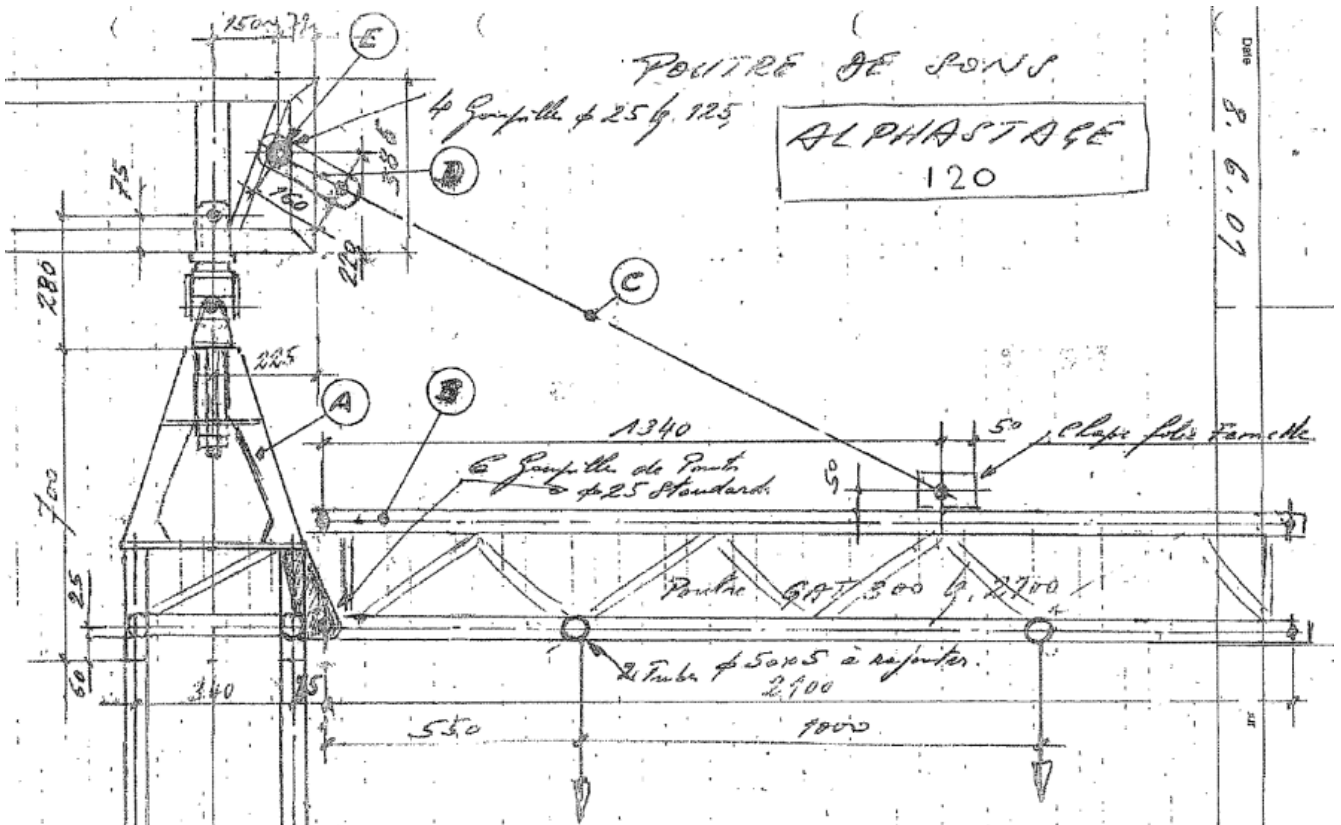 150
79
E
POUTRE DE SONS
ALPHASTAGE
120
Date
8.6.01
4 Goupilles ϕ 25 lg. 125
D
586
75
160
220
280
C
225
A
B
1340
50
Chape folio Femelle
6 Goupilles de Ponts
ϕ 25 Standard
50
700
Poutre GAT 300 lg. 2100
25
60
340
25
2 Tubes ϕ 50x5 à rajouter.
2100
550
1000